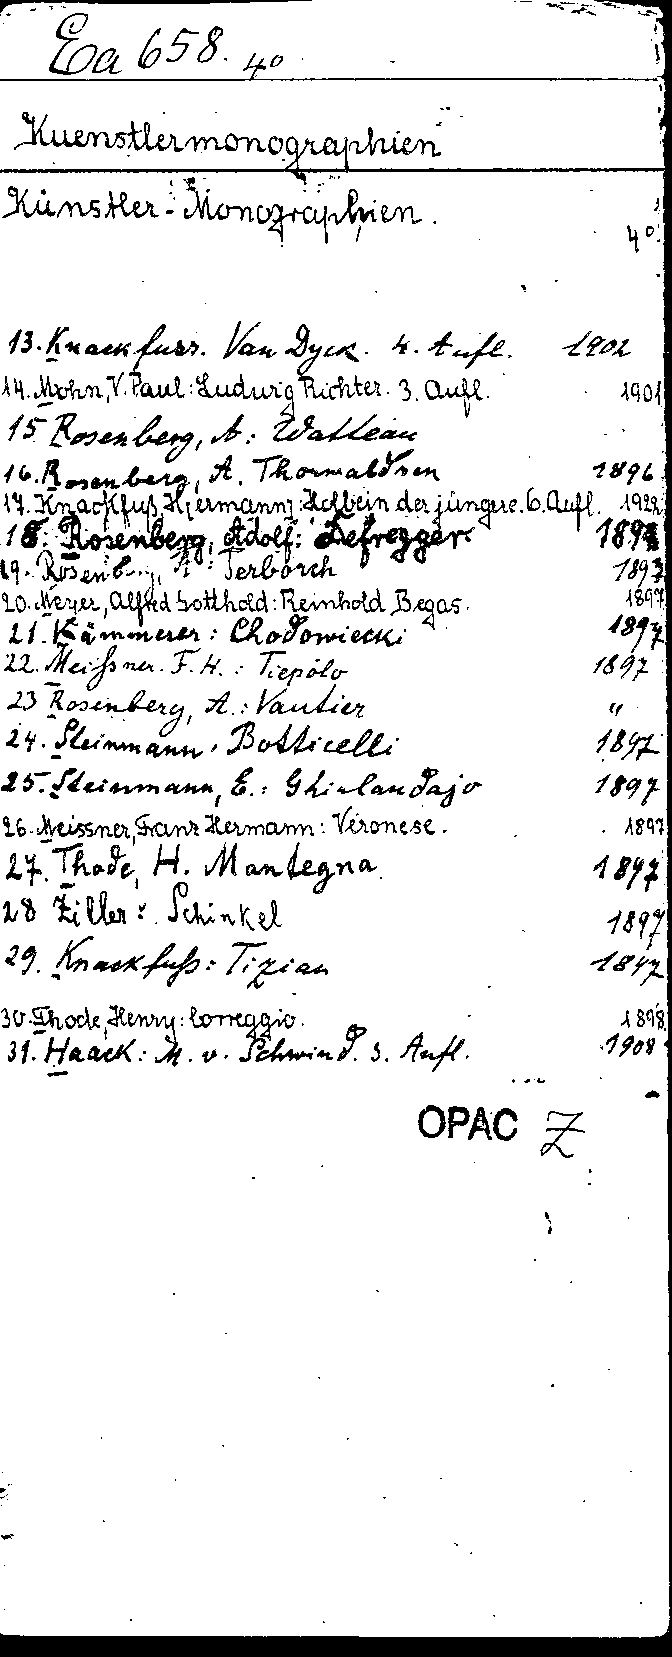 Ea 658. 4°
Kuenstlermonographien
Künstler-Monographien.
4°
13. Knackfuss. Van Dyck. 4. Aufl. 1902
14. Mohn, V. Paul: Ludwig Richter. 3. Aufl. 1901
15 Rosenberg, A: Watteau
16. Rosenberg, A. Thorwaldsen 1896
17. Knackfuß, H[ermann]: Holbein der jüngere. 6. Aufl. 1922
18. Rosenberg, Adolf: Defregger 1897
19. Rosenb..., A: Terborch 1897
20. Meyer, Alfred Gotthold: Reinhold Begas. 1897
21. Kämmerer: Chodowiecki 1897
22. Meissner. F. H.: Tiepolo 1897
23 Rosenberg, A.: Vautier "
24. Steinmann. Botticelli 1897
25. Steinmann, E.: Ghirlandajo 1897
26. Meissner, Franz Hermann: Veronese. 1897
27. Thode, H. Mantegna 1897
28 Ziller: Schinkel 1897
29. Knackfuß: Tizian 1897
30. Thode, Henry: Correggio. 1898
31. Haack: M. v. Schwind. 3. Aufl. 1908
OPAC Z